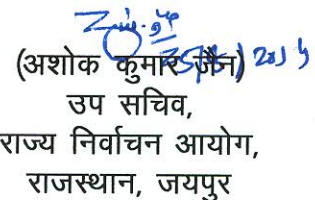 (अशोक कुमार जैन)
उप सचिव,
राज्य निर्वाचन आयोग,
राजस्थान, जयपुर